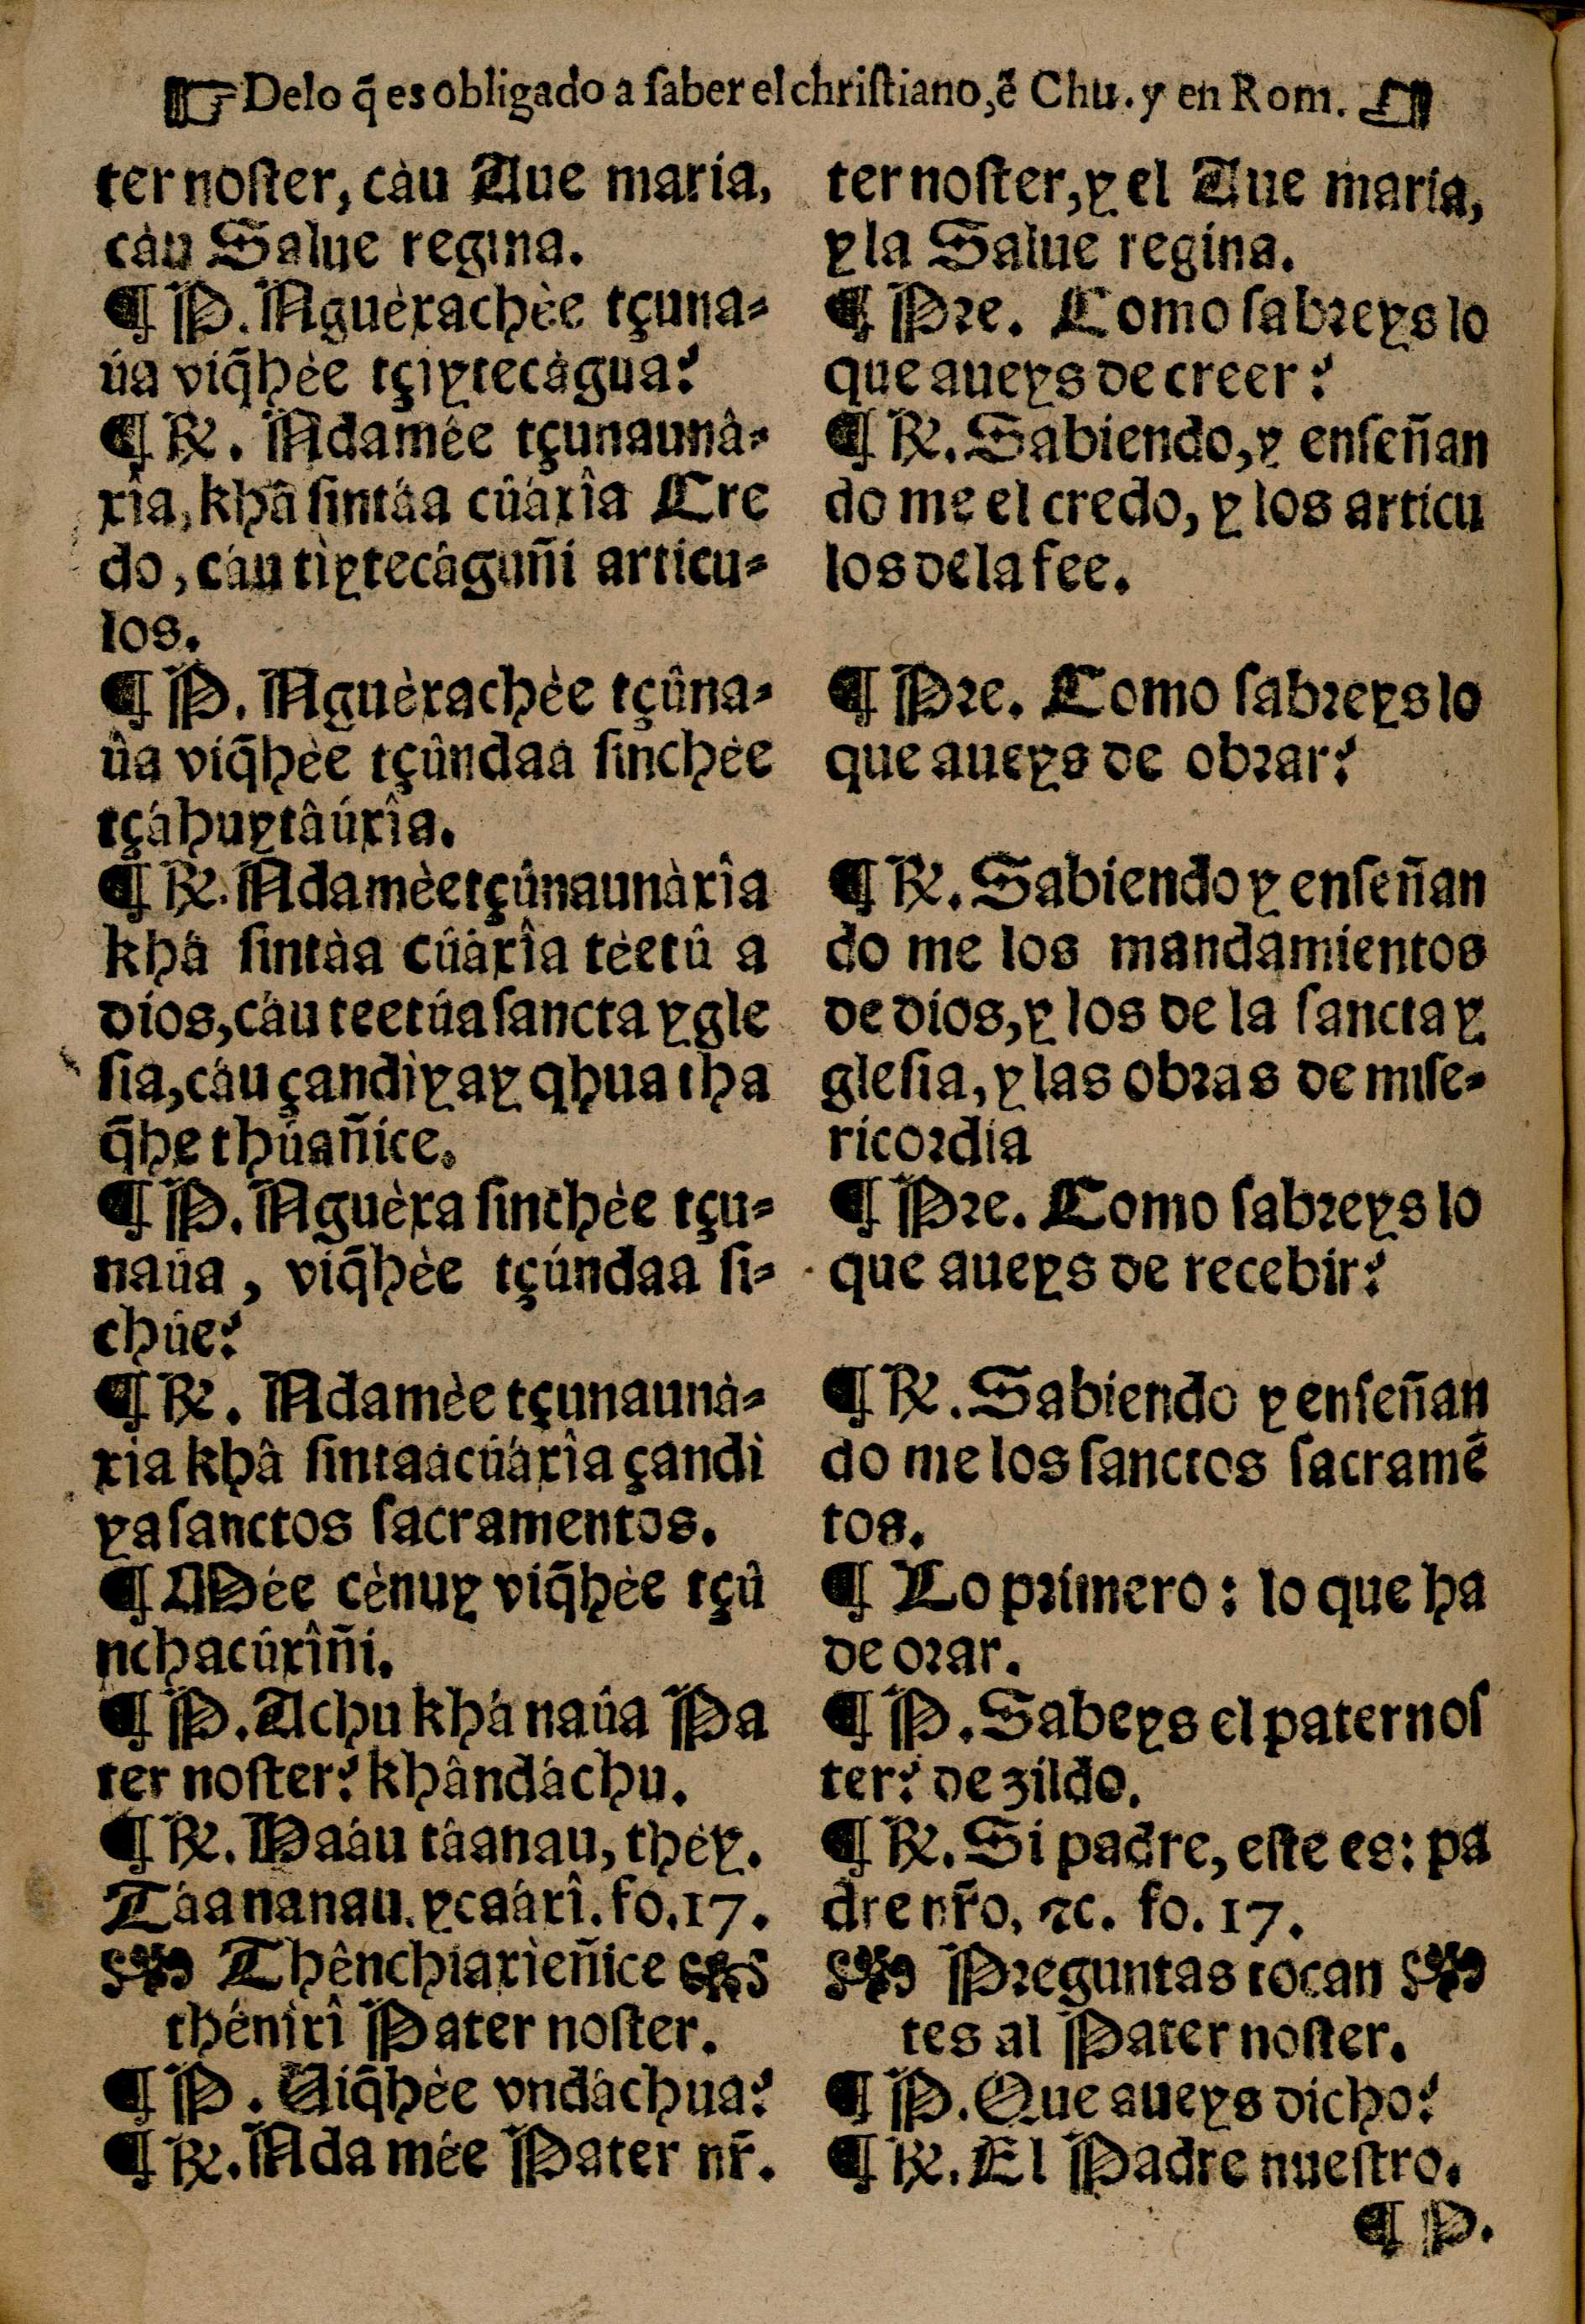 ☞Delo q̃ es obligado a ſaber el chriſtiano, ẽ Chu. y en Rom.
ter noſter, càu Aue maria,
càu Salue regina.
¶ P. Nguèxachèe tçuna-
úa viq̃hèe tçiytecàgua?
¶ R/. Ndamée tçunaunâ-
xîa, khâ ſintáa cûáxîa Cre
do, cáu tìytecâguñi articu-
los.
¶ P. Nguèxachèe tçûna-
ûa viq̃hèe tçûndaa ſinchèe
tçáhuytâúxîa.
¶ R/. Ndamèetçûnaunàxîa
khâ ſintàa cûàxîa tèetû a
dios, càu teetúa ſancta ygle
ſia, cáu çandìyay qhua tha
q̃he thúañice.
¶ P. Nguèxa ſinchèe tçu-
naûa, viq̃hèe tçúndaa ſi-
chúe?
¶ R/. Ndamèe tçunaunà-
xia khâ ſintaacúáxîa çandì
ya ſanctos ſacramentos.
¶ Mée cènuy viq̃hèe tçû
nchacúxîñi.
¶ P. Achu khá naûa Pa
ter noſter? khândáchu.
¶ R/. Haáu tâanau, thèy.
Táananau. ycaáxî. fo. 17.
Thênchiaxìeñice
thénixî Pater noſter.
¶ P. Viq̃hèe vndàchua?
¶ R/. Nda mée Pater nr̃.
ter noſter, y el Aue maria,
y la Salue regina.
¶ Pre. Como ſabreys lo
que aueys de creer?
¶ R/. Sabiendo, y enſeñan
do me el credo, y los articu
los de la fee.
¶ Pre. Como ſabreys lo
que aueys de obrar?
¶ R/. Sabiendo y enſeñan
do me los mandamientos
de dios, y los de la ſancta y
gleſia, y las obras de miſe-
ricordia
¶ Pre. Como ſabreys lo
que aueys de recebir?
¶ R/. Sabiendo y enſeñan
do me los ſanctos ſacramẽ
tos.
¶ Lo primero: lo que ha
de orar.
¶ P. Sabeys el paternoſ
ter? dezildo.
¶ R/. Si padre, eſte es: pa
dre nr̃o, ⁊c. fo. 17.
Preguntas tocan
tes al Pater noſter.
¶ P. Que aueys dicho?
¶ R/. El Padre nueſtro.
¶ P.